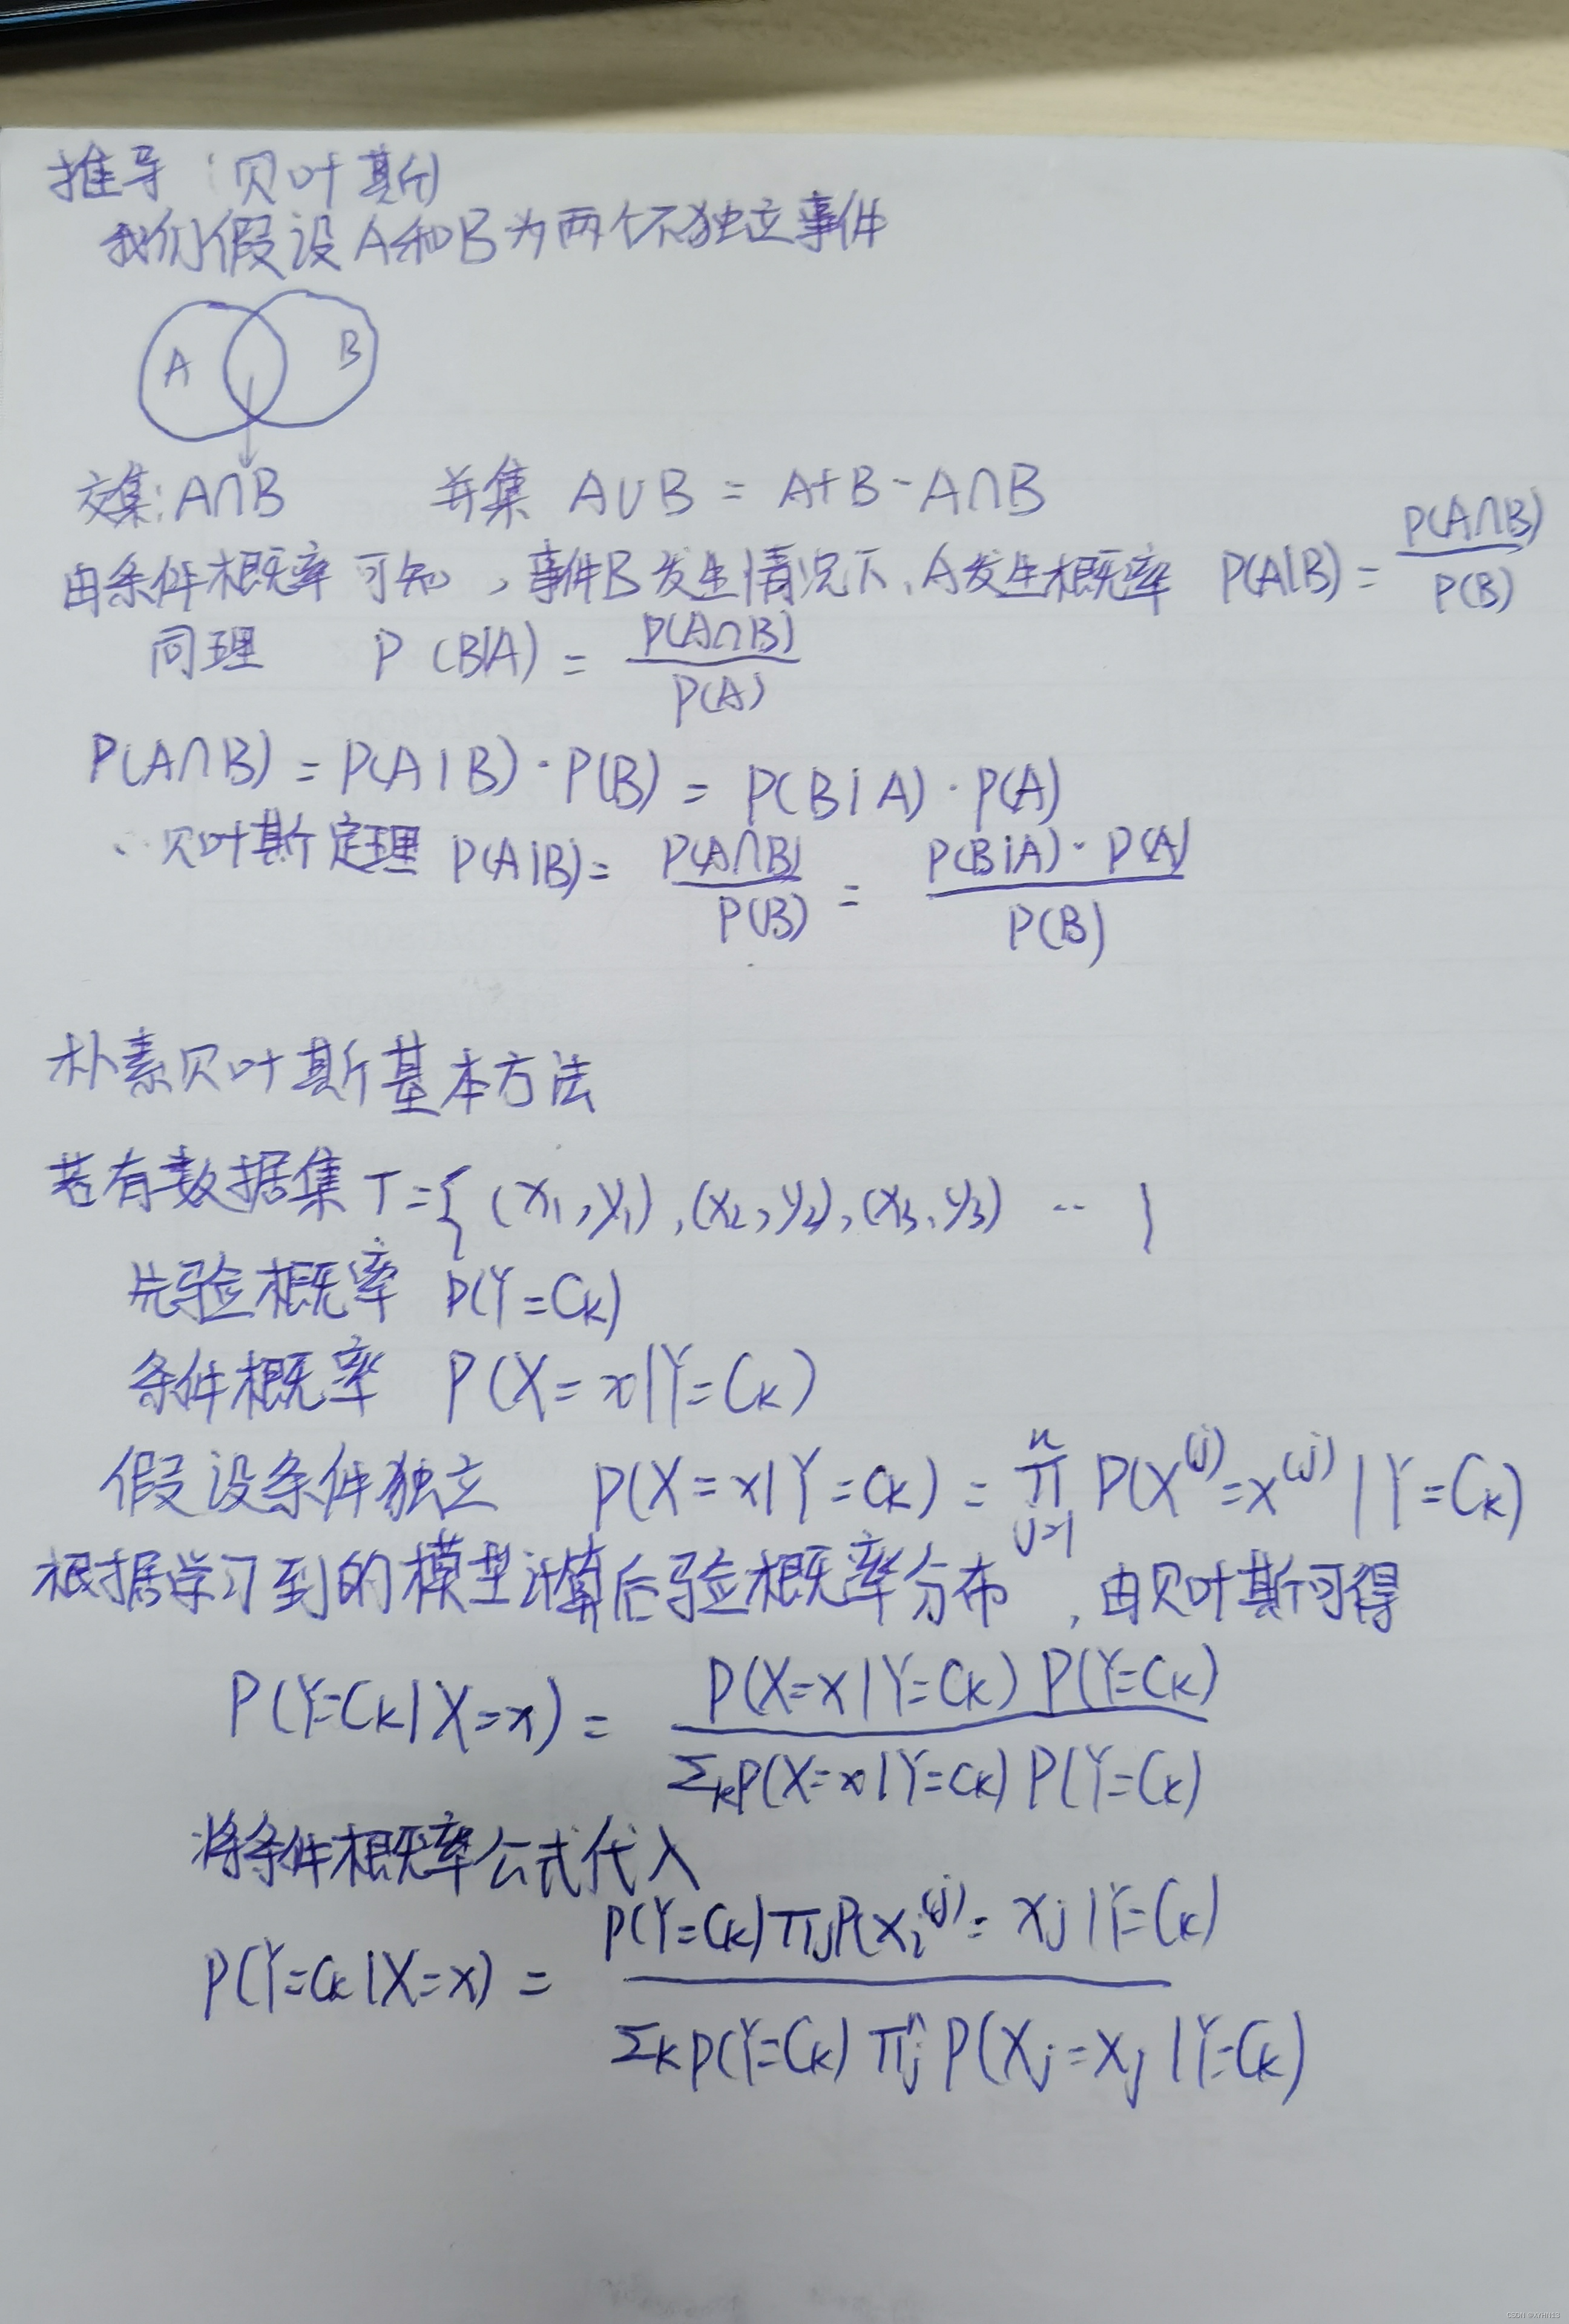 推导：贝叶斯
我们假设A和B为两个不独立事件
A B
交集：A∩B 并集 A∪B = A+B-A∩B
由条件概率可知，事件B发生情况下，A发生概率 P(A|B) = P(A∩B) / P(B)
同理 P(B|A) = P(A∩B) / P(A)
P(A∩B) = P(A|B)·P(B) = P(B|A)·P(A)
∴贝叶斯定理 P(A|B) = P(A∩B) / P(B) = P(B|A)·P(A) / P(B)
朴素贝叶斯基本方法
若有数据集 T={(x₁,y₁),(x₂,y₂),(x₃,y₃) ‥ }
先验概率 P(Y=Cₖ)
条件概率 P(X=x|Y=Cₖ)
假设条件独立 P(X=x|Y=Cₖ) = ∏ⁿⱼ₌₁ P(X⁽ʲ⁾=x⁽ʲ⁾|Y=Cₖ)
根据学习到的模型计算后验概率分布，由贝叶斯可得
P(Y=Cₖ|X=x) = P(X=x|Y=Cₖ)P(Y=Cₖ) / ΣₖP(X=x|Y=Cₖ)P(Y=Cₖ)
将条件概率公式代入
P(Y=Cₖ|X=x) = P(Y=Cₖ)∏ⱼP(Xᵢ⁽ʲ⁾=xⱼ|Y=Cₖ) / ΣₖP(Y=Cₖ)∏ⱼⁿP(Xⱼ=xⱼ|Y=Cₖ)